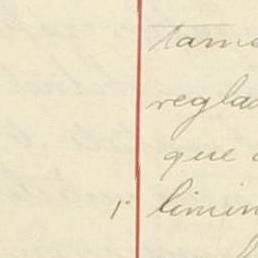 tam
reglas
que
1. limin